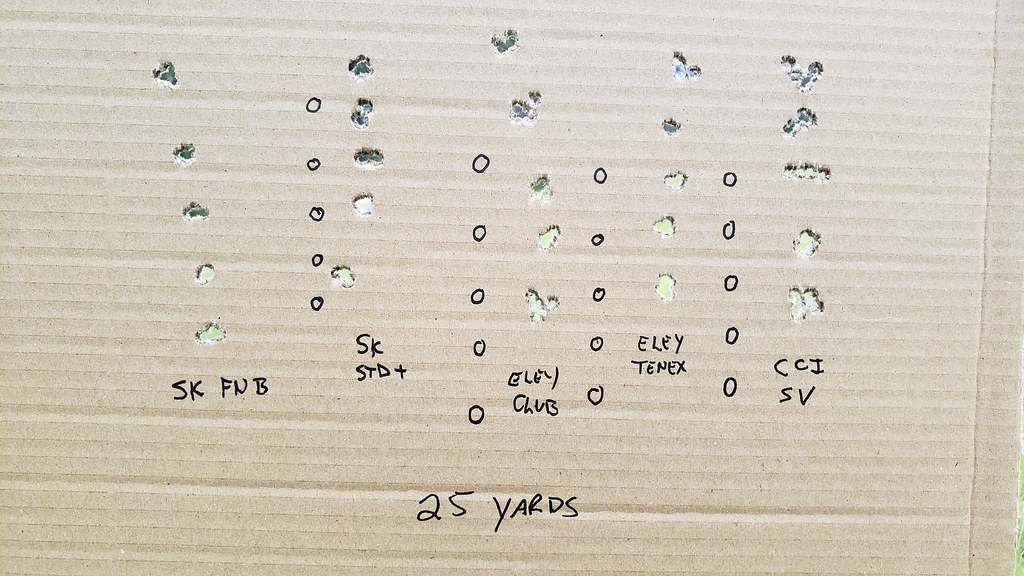 SK FNB
SK
STD+
ELEY
CLUB
ELEY
TENEX
CCI
SV
25 YARDS